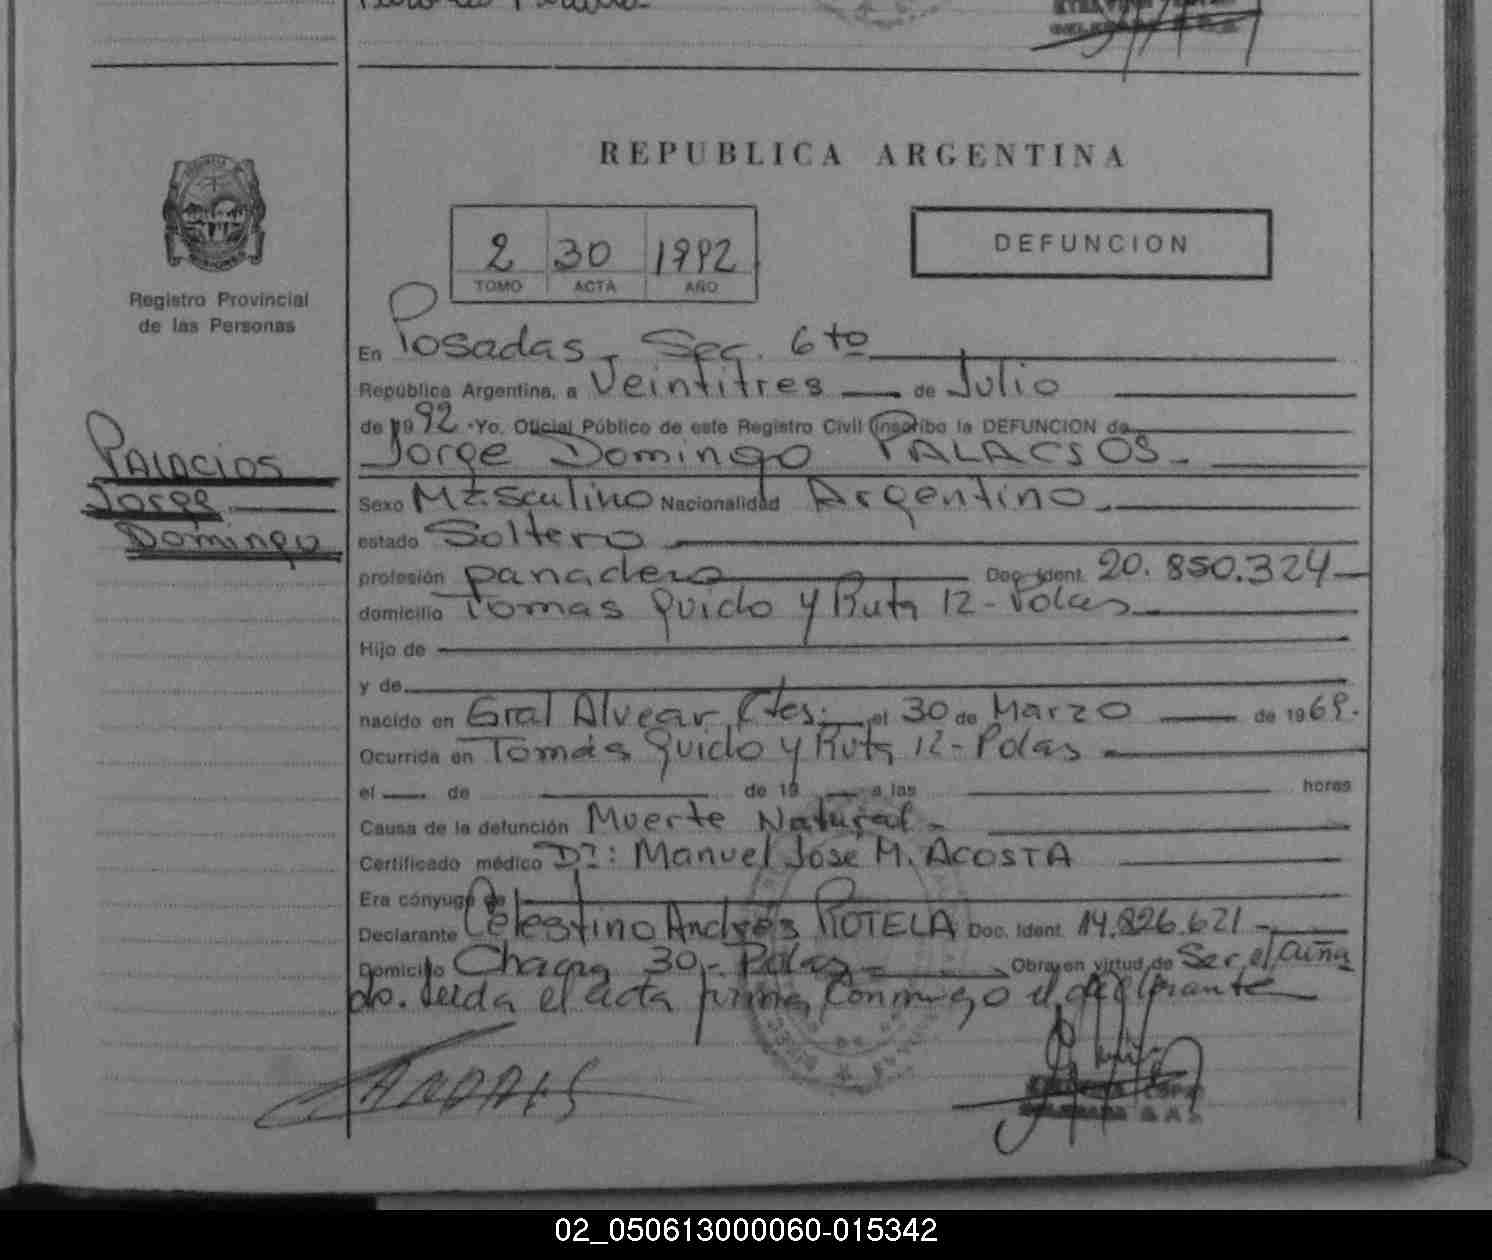 REPUBLICA ARGENTINA
2 30 1992
TOMO ACTA AÑO
DEFUNCION
Registro Provincial
de las Personas
En Posadas, Sec. 6to
República Argentina, a Veintitres de Julio
de 1992 - Yo. Oficial Público de este Registro Civil inscribo la DEFUNCION de
Jorge Domingo PALACIOS -
PALACIOS
Jorge
Domingo
Sexo Masculino Nacionalidad Argentino
estado Soltero
profesión panadero Doc. Ident. 20.850.324
domicilio Tomas Guido y Ruta 12 - Pdas
Hijo de
y de
nacido en Gral Alvear, Ctes. el 30 de Marzo de 1969.
Ocurrida en Tomás Guido y Ruta 12 - Pdas
el de de 19 a las horas
Causa de la defunción Muerte Natural -
Certificado médico Dr: Manuel José M. ACOSTA
Era cónyuge de
Declarante Celestino Andrés ROTELA Doc. Ident. 14.826.621 -
Domicilio Chacra 30 - Pdas - Obra en virtud de Ser el cuña
do. Leida el acta firma conmigo el declarante
02_050613000060-015342